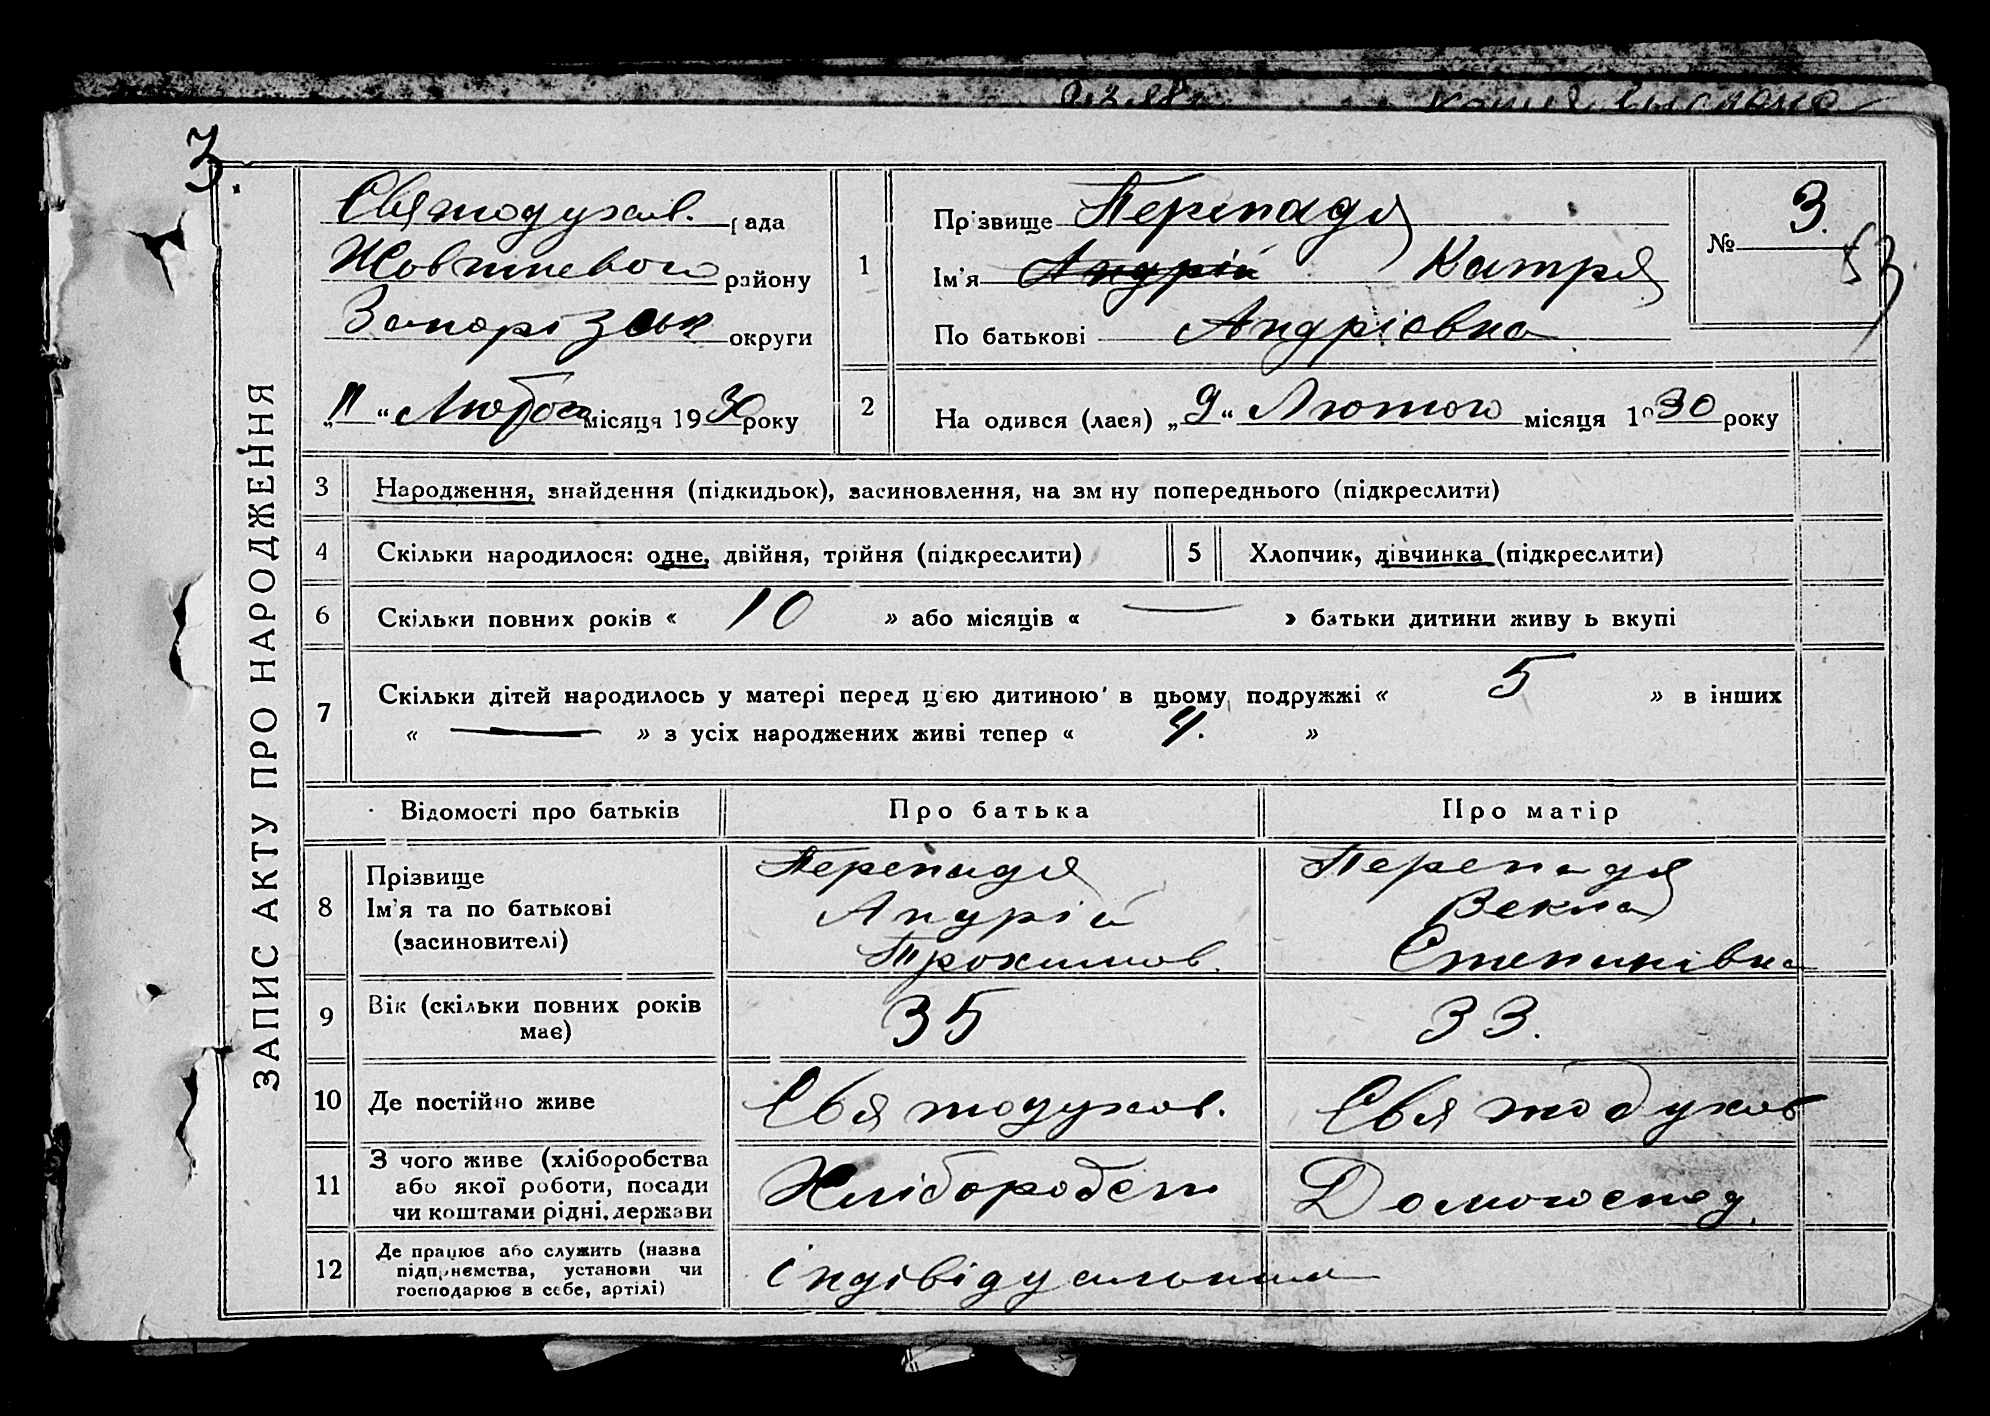 3.
Святодухов. рада
Жовтневого району
Запорізськ округи
„11“ Лютого місяця 1930 року
ЗАПИС АКТУ ПРО НАРОДЖЕННЯ
1 Прізвище Перепадя
Ім'я Андрій Катря
По батькові Андрієвна
№ 3.
2 На одився (лася) „9“ Лютого місяця 1930 року
3 Народження, знайдення (підкидьок), засиновлення, на зм ну попереднього (підкреслити)
4 Скільки народилося: одне, двійня, трійня (підкреслити) 5 Хлопчик, дівчинка (підкреслити)
6 Скільки повних років « 10 » або місяців « — » батьки дитини живу ь вкупі
7 Скільки дітей народилось у матері перед цією дитиною в цьому подружжі « 5 » в інших
« — » з усіх народжених живі тепер « 4. »
Відомості про батьків Про батька Про матір
8 Прізвище Перепадя Перепадя
Ім'я та по батькові Андрій Векла
(засиновителі) Трохимов. Степанівна
9 Вік (скільки повних років має) 35 33.
10 Де постійно живе Святодухов. Святодухов
11 З чого живе (хліборобства
або якої роботи, посади
чи коштами рідні, держави Хлібороб Домогоспод.
12 Де працює або служить (назва
підприємства, установи чи
господарює в себе, артілі)